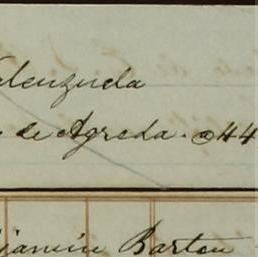 alenzuela
de Agreda. 044
jamin Barton